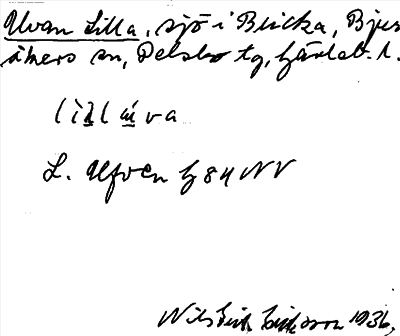 Ulvan Lilla, sjö i Bricka, Bjur
åkers sn, Delsbo tg, Gävleb. l.
lìll úva
L. Ulfven h 84 NV
Nils Erik Eriksson 1936,